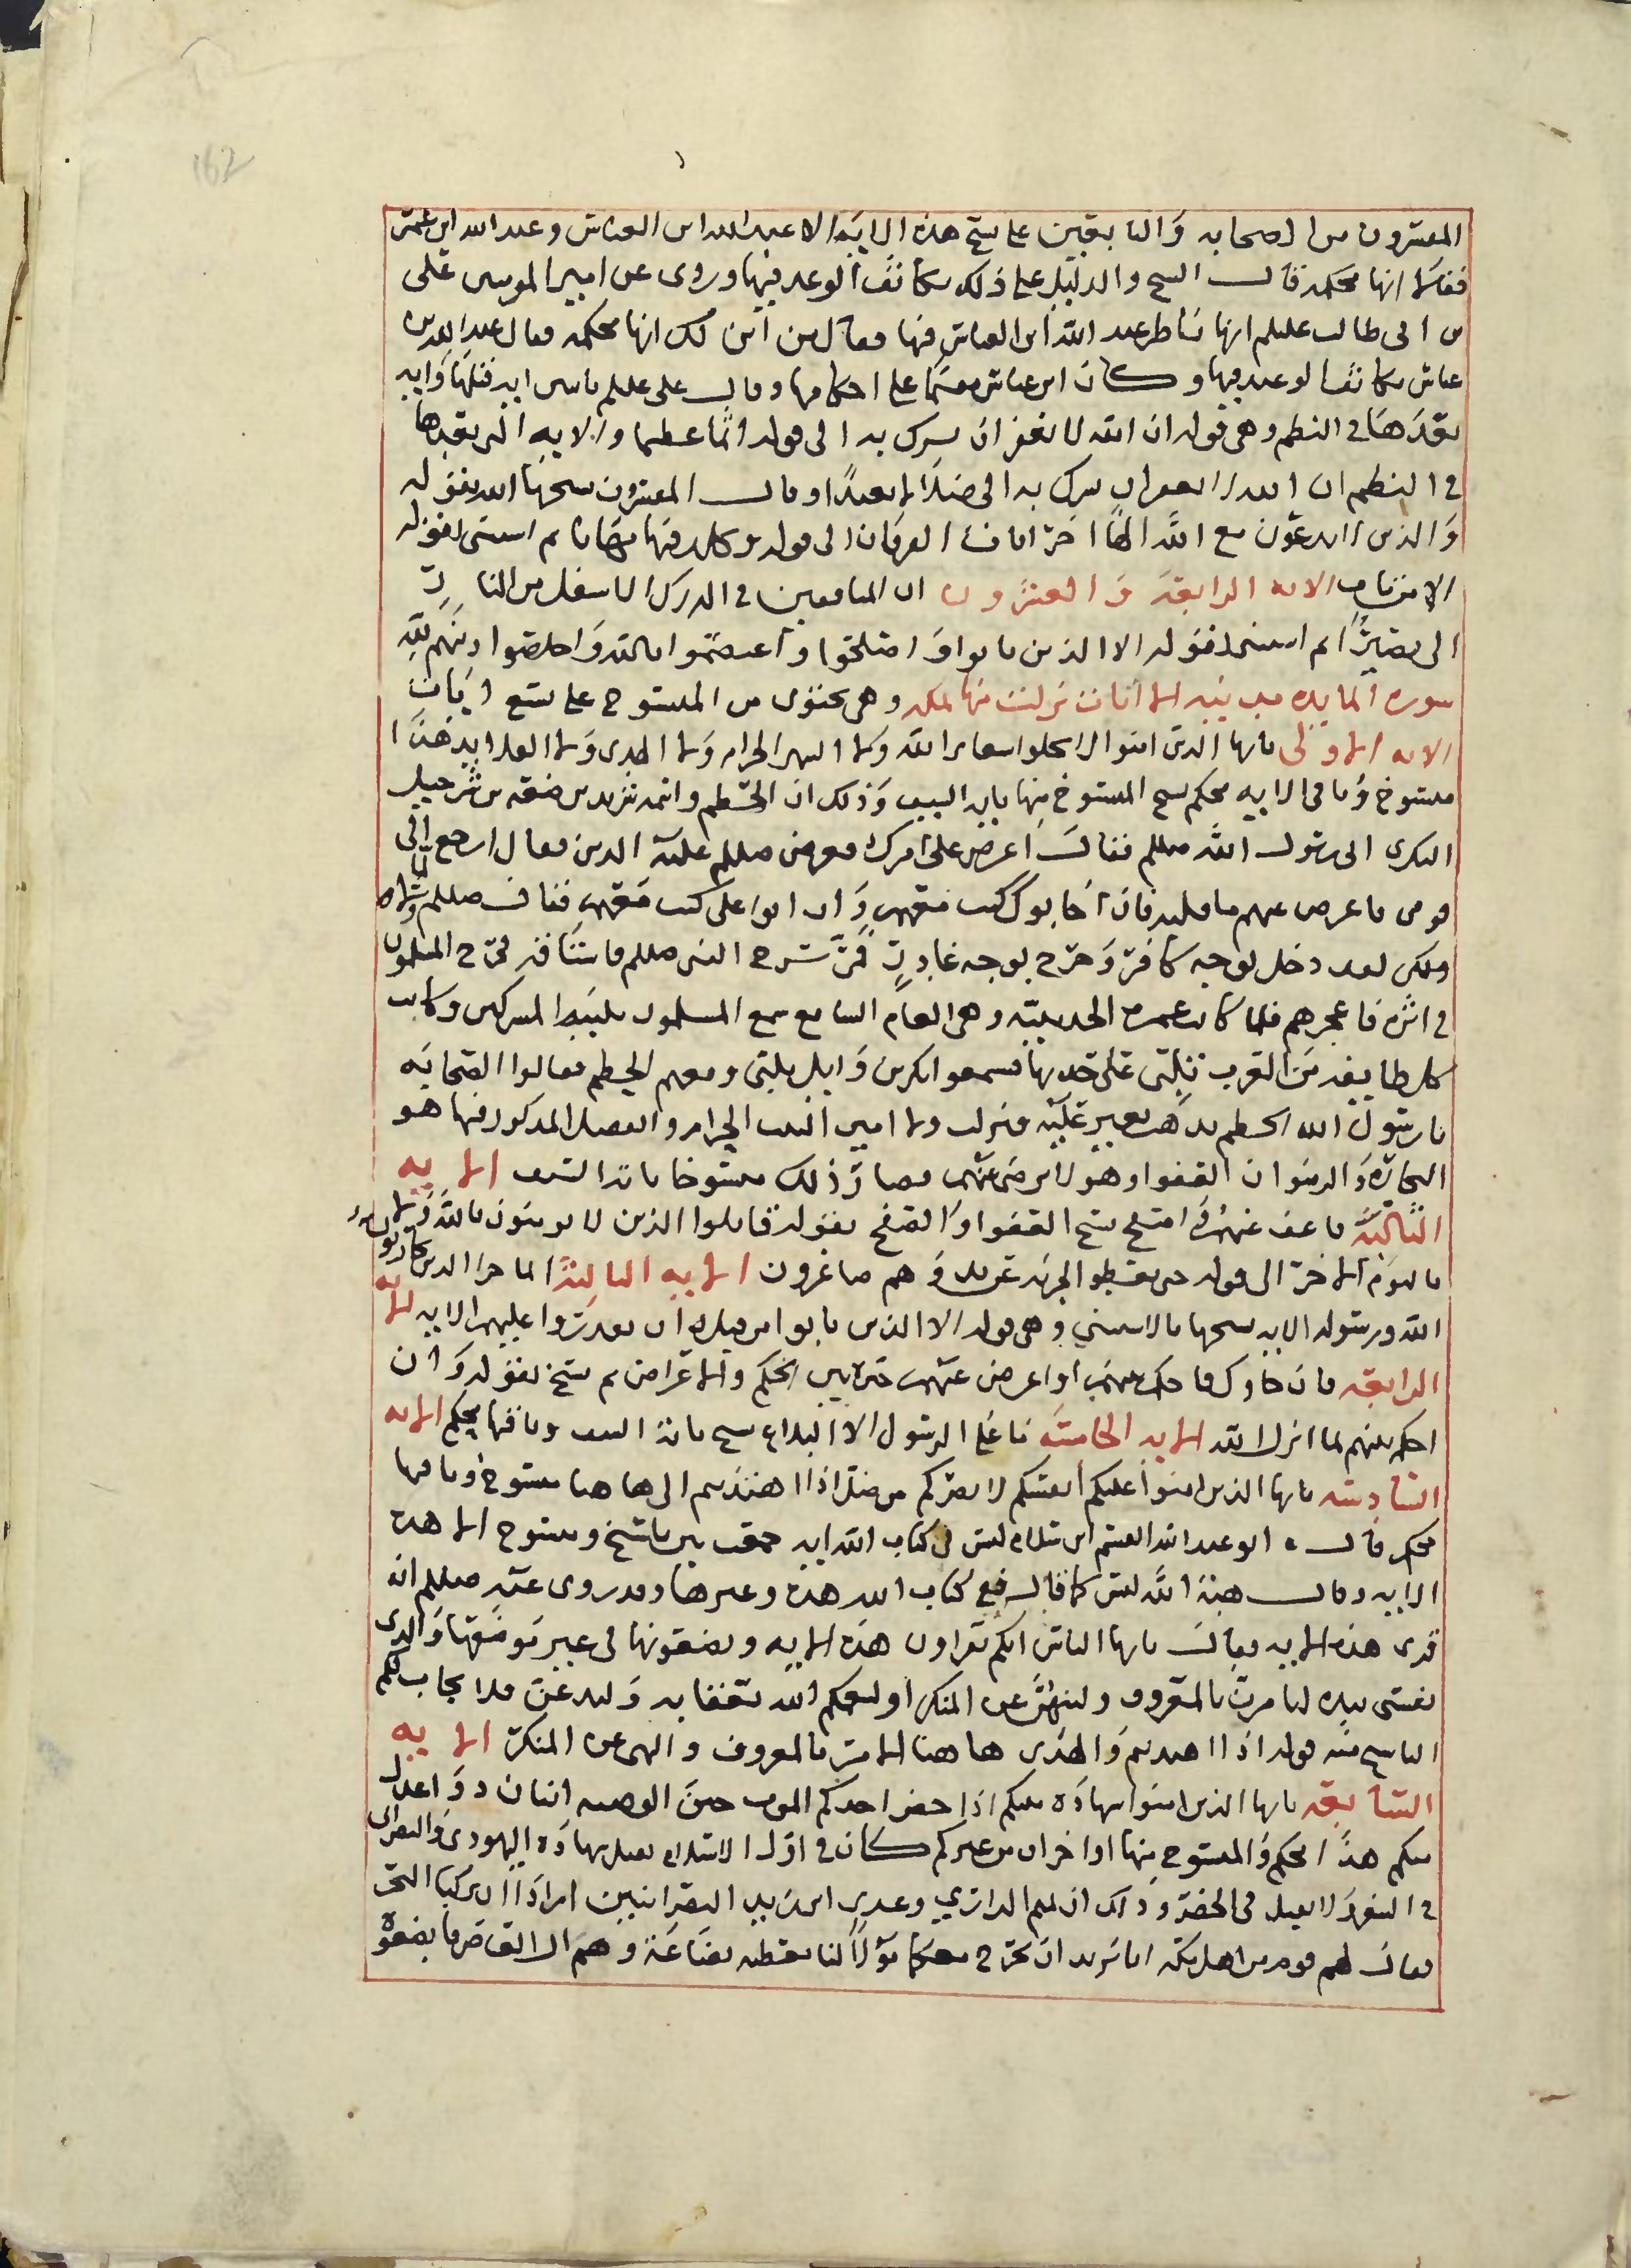 162
المفسرون من الصحابه والتابعين على نسخ هذه الايه الا عبد الله ابن العباس وعبد الله ابن عمر
فقالا انها محكمه قال الشيخ والدليل على ذلك تكاثف الوعيد فيها وروى عن امير المومنين على
بن ابى طالب عليلم انها ناظر عبد الله ابن العباس فيها فقال من اين لك انها محكمه فقال عبد الله بن
عباس تكاثف الوعيد فيها وكان ابن عباس مقيما على احكامها وقال على عليلم ناسخ ايه قبلها وايه
بعدها فى النظم وهى قوله ان الله لا يغفر ان يشرك به الى قوله اثما عظيما والايه التى بعدها
فى النظم ان الله لا يغفر ان يشرك به الى ضلالا بعيدا وقال المفسرون نسخها الله بقوله
والذين لا يدعون مع الله الها اخر اما فى الفرقان الى قوله ويخلد فيها مهانا ثم استثنى بقوله
الا من تاب الايه الرابعة والعشرون ان المنافقين فى الدرك الاسفل من النار
الى نصيرا ثم استثنى بقوله الا الذين تابوا واصلحوا واعتصموا بالله واخلصوا دينهم لله
سورة المايده مدينيه الا ايات نزلت منها بمكه وهى تحتوى من المنسوخ على تسع ايات
الايه الاولى يايها الذين امنوا لا تحلوا شعاير الله ولا الشهر الحرام ولا الهدى ولا القلايد هذا
منسوخ وباقى الايه محكم نسخ المنسوخ منها بايه السيف وذلك ان الحطم واسمه شريح بن ضبيعه بن شرحبيل
البكرى الى رسول الله صللم فقال اعرض على امرك فعرض صللم عليه الدين فقال ارجع الى
قومى فاعرض عليهم ما قلته فان اجابوك كنت معهم وان ابوا على كنت معهم فقال صللم
ولكن لقد دخل بوجه كافر وخرج بوجه غادر فمر بسرح النبى صللم فاستاقه فخرج المسلمون
فى اثره فاعجزهم فلما كانت عمرة الحديبيه وهى العام السابع سمع المسلمون تلبية المشركين وكانت
كل طايفه من العرب تلبى على حدتها فسمعوا بكر بن وايل يلبى ومعهم الحطم فقالوا الصحابه
يا رسول الله الحطم نذهب نغير عليه فنزلت ولا امين البيت الحرام والفضل المذكور فيها هو
التجارة والرضوان العفو وهو لا يرضى عنهم فصار ذلك منسوخا باية السيف الايه
الثانية فاعف عنهم واصفح نسخ العفو والصفح بقوله قاتلوا الذين لا يومنون بالله ولا
باليوم الاخر الى قوله حتى يعطوا الجزيه عن يد وهم صاغرون الايه الثالثة انما جزا الذين يحاربون
الله ورسوله الايه نسخها بالاستثنى وهى قوله الا الذين تابوا من قبل ان تقدروا عليهم الايه
الرابعه فان جاوك فاحكم بينهم او اعرض عنهم خير بين الحكم والاعراض ثم نسخ بقوله وان
احكم بينهم بما انزل الله الايه الخامسة ما على الرسول الا البلاغ نسخ باية السيف وباقيها محكم الايه
السادسه يايها الذين امنوا عليكم انفسكم لا يضركم من ضل اذا اهتديتم الى هاهنا منسوخ وباقيها
محكم قال ابو عبد الله القسم ابن سلام ليس فى كتاب الله ايه جمعت بين ناسخ ومنسوخ الا هذه
الايه وقال هبة الله ليس كما قال فى كتاب الله هذه وغيرها وقد روى عنه صللم انه
قرى هذه الايه فقال يايها الناس انكم تقراون هذه الايه وتضعونها فى غير موضعها والذى
نفسى بيده لتامرن بالمعروف ولتنهون عن المنكر او ليعمكم الله بعقابه ولتدعن فلا يجاب لكم
الناسخ منه قوله اذا اهتديتم والهدى هاهنا الامر بالمعروف والنهى عن المنكر الايه
السابعه يايها الذين امنوا شهادة بينكم اذا حضر احدكم الموت حين الوصيه اثنان ذوا عدل
منكم هذا محكم والمنسوخ منها او اخران من غيركم كان فى اول الاسلام تقبل شهادة اليهودى والنصرانى
فى السفر ولا تقبل فى الحضر وذلك ان تميم الدارى وعدى ابن زيد النصرانيين ارادا ان يركبا البحر
فقال لهم قوم من اهل مكه انا نريد ان نخرج معكما مولا لنا نعطيه بضاعة وهم ال العاص فابضعوه